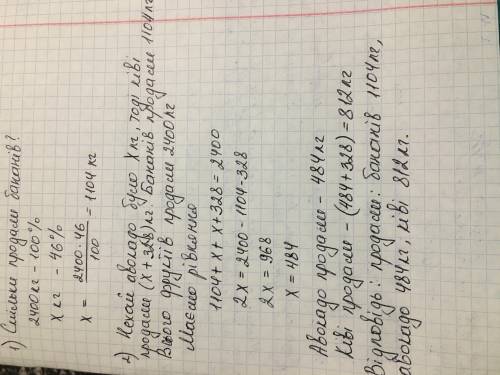 1) Скільки продали бананів?
2400 кг - 100%
X кг - 46%
X = 2400 · 46 / 100 = 1104 кг
2) Нехай авокадо було X кг, тоді ківі
продали (X + 328) кг. Бананів продали 1104 кг
Всього фруктів продали 2400 кг
Маємо рівняння
1104 + X + X + 328 = 2400
2X = 2400 - 1104 - 328
2X = 968
X = 484
Авокадо продали - 484 кг
Ківі продали - (484 + 328) = 812 кг
Відповідь: продали: бананів 1104 кг,
авокадо 484 кг, ківі 812 кг.